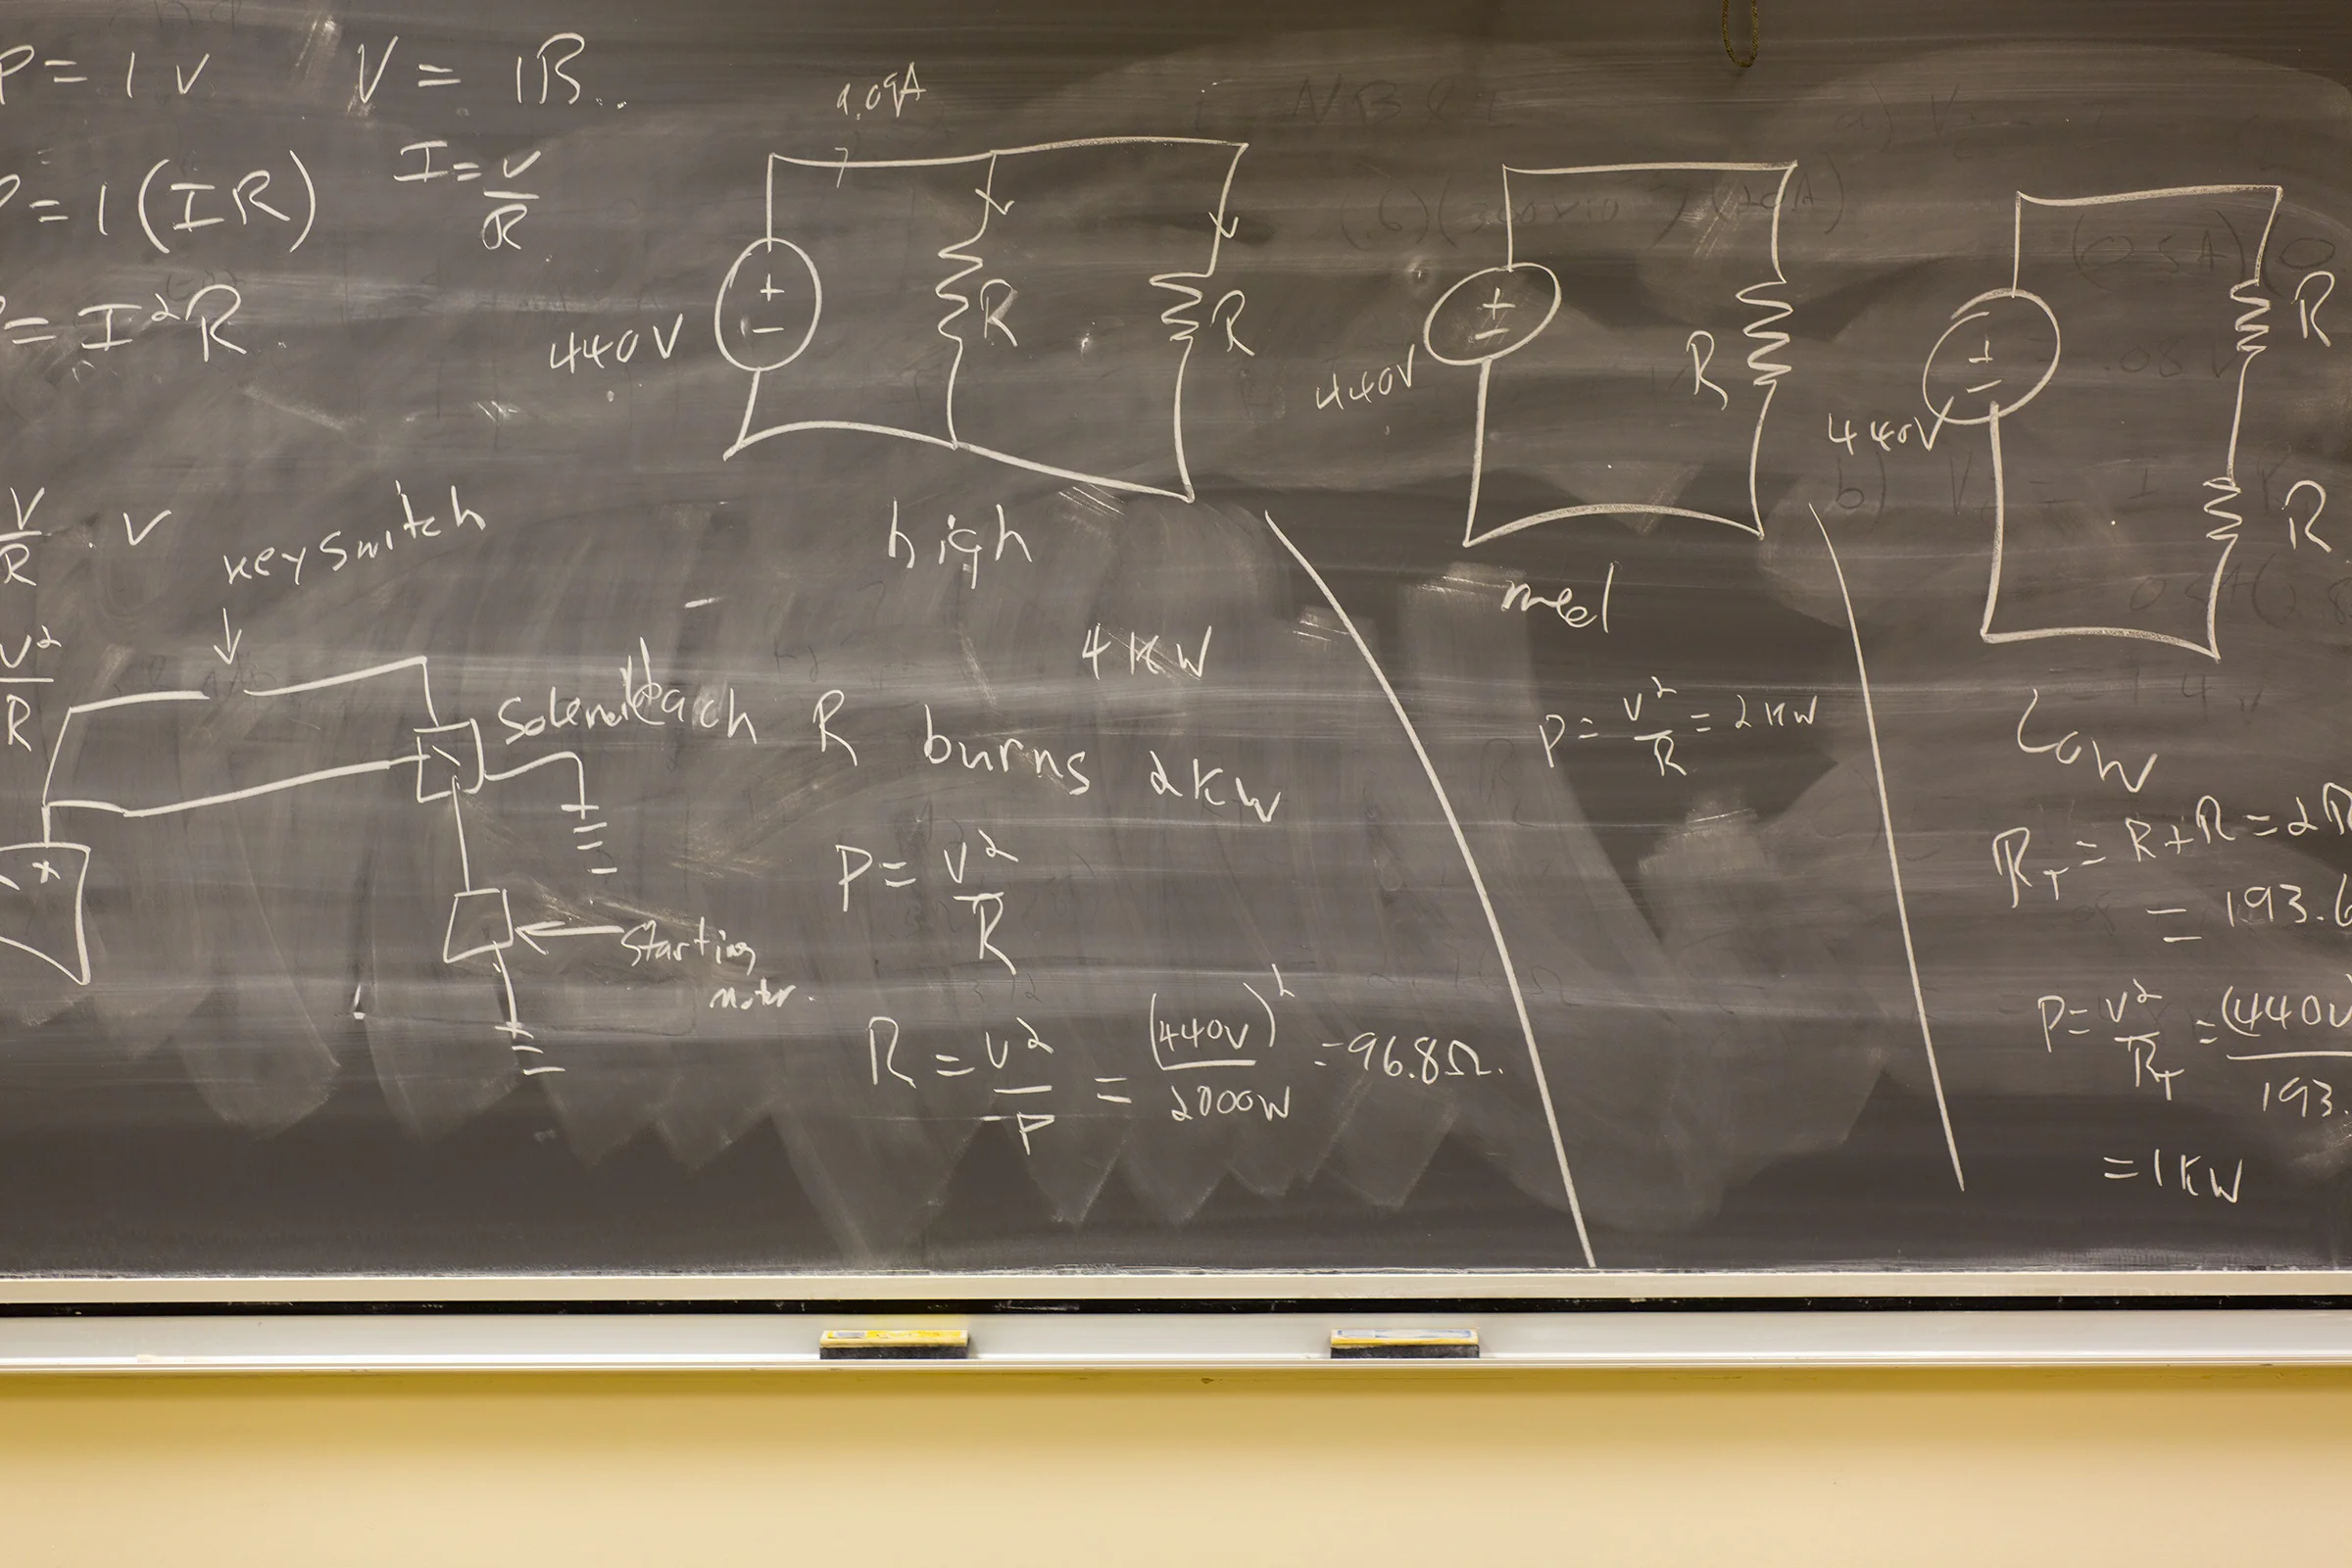 P = I V
V = IR
P = I (IR)
I = V/R
= I²R
V/R . V
V²/R
key switch
Solenoid
starting
motor.
9.09A
440V
+
−
R
R
high
4 KW
each R burns 2KW
P = V²/R
R = V²/P = (440V)²/2000W = 96.8Ω.
440V
+
−
R
med
P = V²/R = 2KW
440V
+
−
R
R
Low
R_T = R + R = 2R
= 193.6
P = V²/R_T = (440V/193.
= 1KW